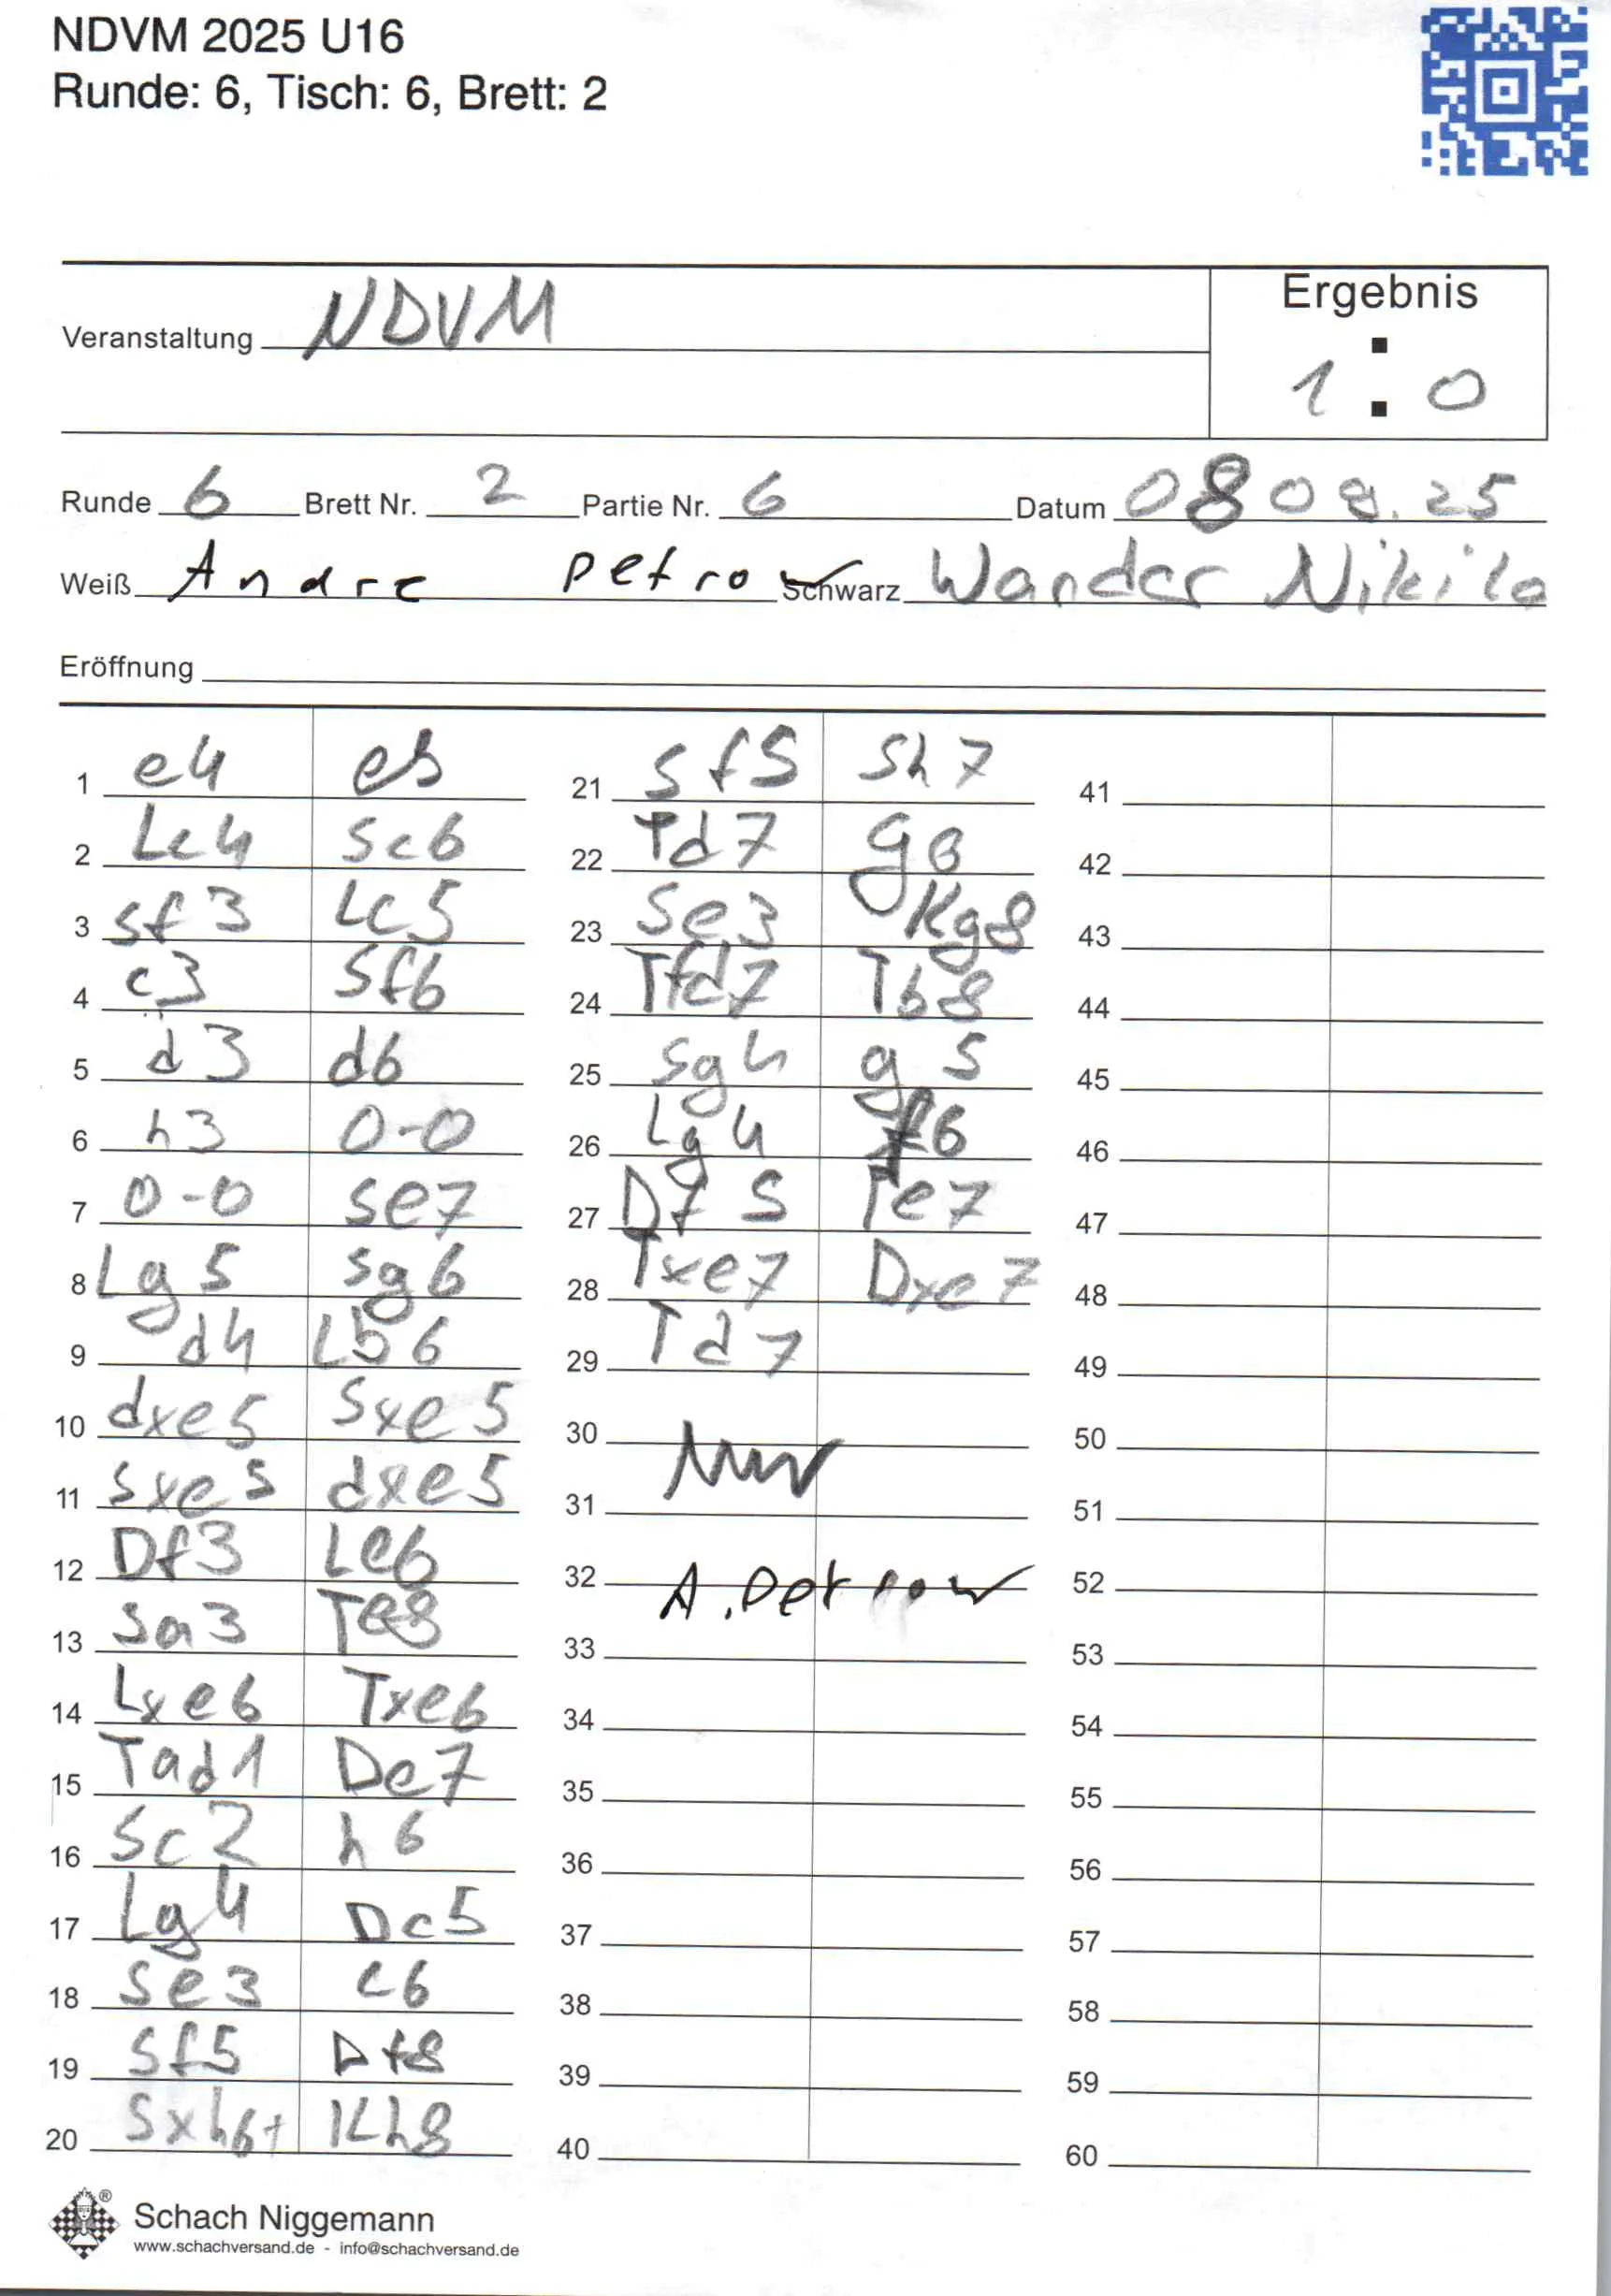 NDVM 2025 U16
Runde: 6, Tisch: 6, Brett: 2
Veranstaltung NDVM
Ergebnis
1 : 0
Runde 6 Brett Nr. 2 Partie Nr. 6 Datum 08 08.25
Weiß Andre Petrow Schwarz Wander Nikita
Eröffnung
1 e4 e5
2 Lc4 Sc6
3 Sf3 Lc5
4 c3 Sf6
5 d3 d6
6 h3 0-0
7 0-0 Se7
8 Lg5 Sg6
9 d4 Lb6
10 dxe5 Sxe5
11 Sxe5 dxe5
12 Df3 Le6
13 Sa3 Te8
14 Lxe6 Txe6
15 Tad1 De7
16 Sc2 h6
17 Lg4 Dc5
18 Se3 c6
19 Sf5 Df8
20 Sxh6+ Kh8
21 Sf5 Sh7
22 Td7 g6
23 Se3 Kg8
24 Tfd7 Tb8
25 Sg4 g5
26 Lg4 f6
27 Df5 Te7
28 Txe7 Dxe7
29 Td7
30
31
32 A. Petrow
33
34
35
36
37
38
39
40
41
42
43
44
45
46
47
48
49
50
51
52
53
54
55
56
57
58
59
60
Schach Niggemann
www.schachversand.de - info@schachversand.de